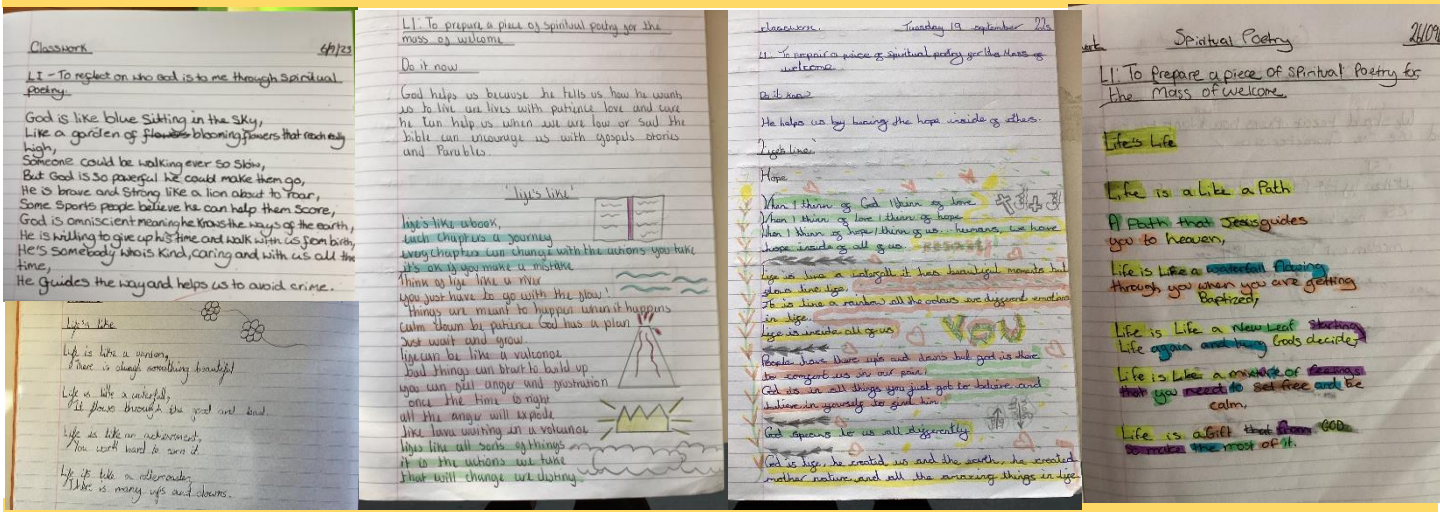 Classwork 6/9/23
LI - To reflect on who God is to me through spiritual
poetry.
God is like blue sitting in the sky,
Like a garden of flowers blooming flowers that reach really
high,
Someone could be walking ever so slow,
But God is so powerful he could make them go,
He is brave and strong like a lion about to roar,
Some sports people believe he can help them score,
God is omniscient meaning he knows the ways of the earth,
He is willing to give up his time and walk with us from birth,
He's somebody who is kind, caring and with us all the
time,
He guides the way and helps us to avoid crime.
Life's like
Life is like a garden,
There is always something beautiful
Life is like a waterfall,
It flows through the good and bad.
Life is like an achievement,
You work hard to earn it
Life is like a rollercoaster,
There is many ups and downs.
LI: To prepare a piece of spiritual poetry for the
mass of welcome
Do it now
God helps us because he tells us how he wants
us to live are lives with patience love and care
he can help us when we are low or sad the
bible can encourage us with gospels stories
and Parables.
'life's like'
life's like a book,
each chapter is a journey
every chapter can change with the actions you take
it's ok if you make a mistake
Think of life like a river
you just have to go with the flow!
Things are meant to happen when it happens
calm down be patience God has a plan
Just wait and grow.
life can be like a valcanoe
bad things can start to build up
you can feel anger and frustration
once the time is right
all the anger will explode
like lava waiting in a volcanoe
lifes like all sorts of things
it is the actions we take
that will change are distiny.
classwork. Tuesday 19 september 23
LI: To prepair a piece of spiritual poetry for the Mass of
welcome
Do it know
He helps us by being the hope inside of others.
'Life's line'
Hope
When I think of God I think of love
When I think of love I think of hope
When I think of hope I think of us... humans, we have
hope inside of all of us.
Life is like a waterfall it has beautiful moments but
It is like a rainbow all the colours are different emotions
in life.
Life is inside all of us
People have there ups and downs but god is there
to comfort us in our pain
God is in all things you just got to believe and
believe in yourself to find him.
God speaks to us all differently
God is life, he created us and the earth, he created
mother nature and all the amazing things in life
Spiritual Poetry 26/09
LI: To prepare a piece of spiritual Poetry for
the Mass of welcome
Life's Life
Life is a Like a Path
A Path that Jesus guides
you to heaven,
Life is Like a waterfall flowing
through you when you are getting
Baptized,
Life is Life a New Leaf starting
Life again and being Gods decider
Life is Like a mixture of feelings
that you need to set free and be
calm,
Life is a Gift that from GOD
so make the most of it.